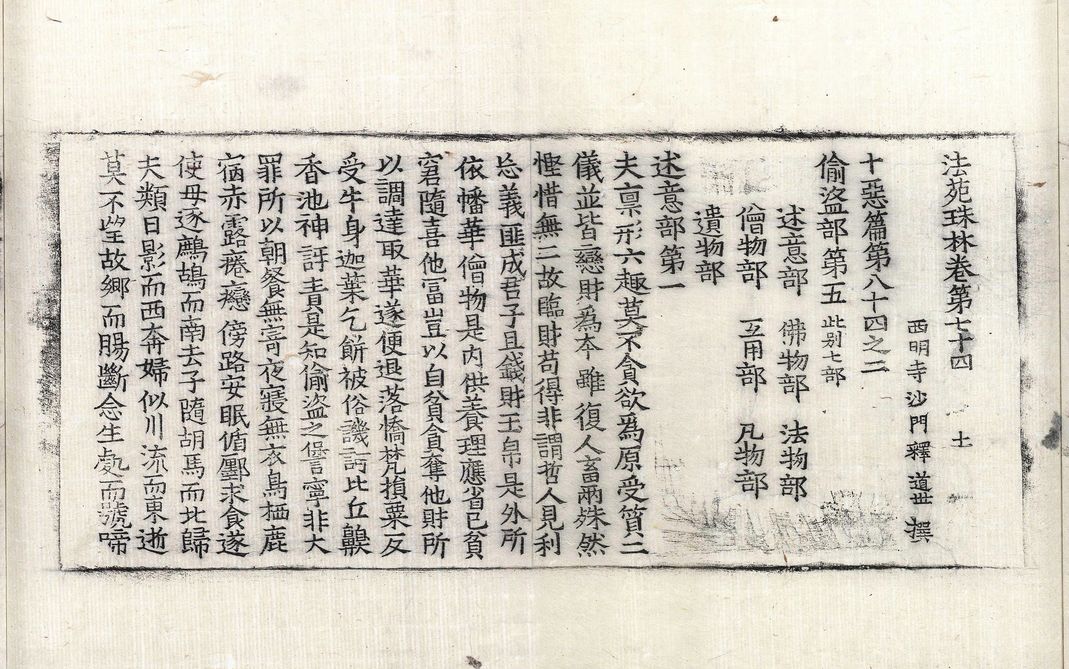 法苑珠林卷第七十四 士
西明寺沙門釋道世撰
十惡篇第八十四之二
偷盜部第五此別七部
述意部 佛物部 法物部
僧物部 互用部 凡物部
遺物部
述意部第一
夫禀形六趣莫不貪欲爲原受質二
儀並皆戀財爲本雖復人畜兩殊然
慳惜無二故臨財苟得非謂哲人見利
忘義匪成君子且錢財玉帛是外所
依幡華僧物是内供養理應省已貧
窮隨喜他富豈以自貧貪奪他財所
以調達取華遂便退落憍梵損粟反
受牛身迦葉乞餅被俗譏訶比丘齅
香池神訶責是知偷盜之僁寧非大
罪所以朝餐無寄夜寢無衣鳥栖鹿
宿赤露癃㾾傍路安眠循鄽求食遂
使母逐鷓鴣而南去子隨胡馬而北歸
夫類日影而西奔婦似川流而東逝
莫不望故鄉而腸斷念生處而號啼